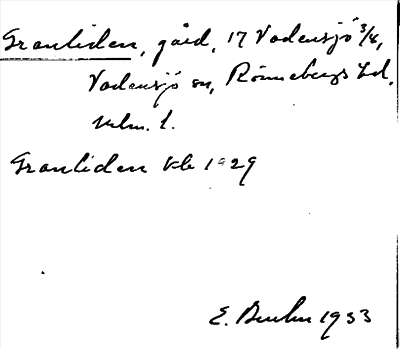 Granliden, gård, 17 Vadensjö 3/8,
Vadensjö sn, Rönnebergs hd,
Mlm. l.
Granliden Kb 1929
E. 1933